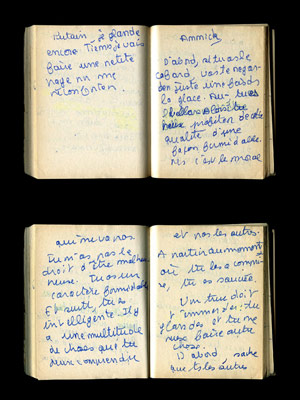 Putain je glande
encore. Tiens je vais
faire une petite
page pour me
Annick
D'abord, si tu as le
cafard, vas te regar
der juste une fois ds
la glace. Puis tu es
peux profiter de
qualité d'une
façon formidable.
c'est le moral
qui ne va pas.
Tu n'as pas le
droit d'être malheu
reuse. Tu as un
caractère formidable
Ensuite, tu es
intelligente. Il y
a une multitude
de choses que tu
peux comprendre
et pas les autres.
A partir du moment
où tu les a compri
se, tu es sauvée.
Un truc doit
t'emmerder: tu
glandes et tu ne
peux faire autre
chose.
D'abord, sache
que ts les autres